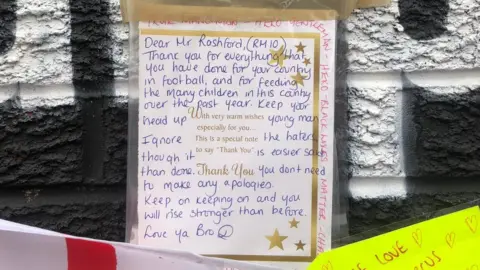 HERO GENTLEMAN
HERO - BLACK LIVES - MATTER -
Dear Mr Rashford, (RM10)
Thank you for everything that
you have done for your country
in football, and for feeding
the many children in this country
over the past year. Keep your
head up young man
With very warm wishes
especially for you...
This is a special note
to say "Thank You"
Thank You
Ignore the haters
though it is easier said
than done. you don't need
to make any apologies.
Keep on keeping on and you
will rise stronger than before.
Love ya Bro
LOVE
US